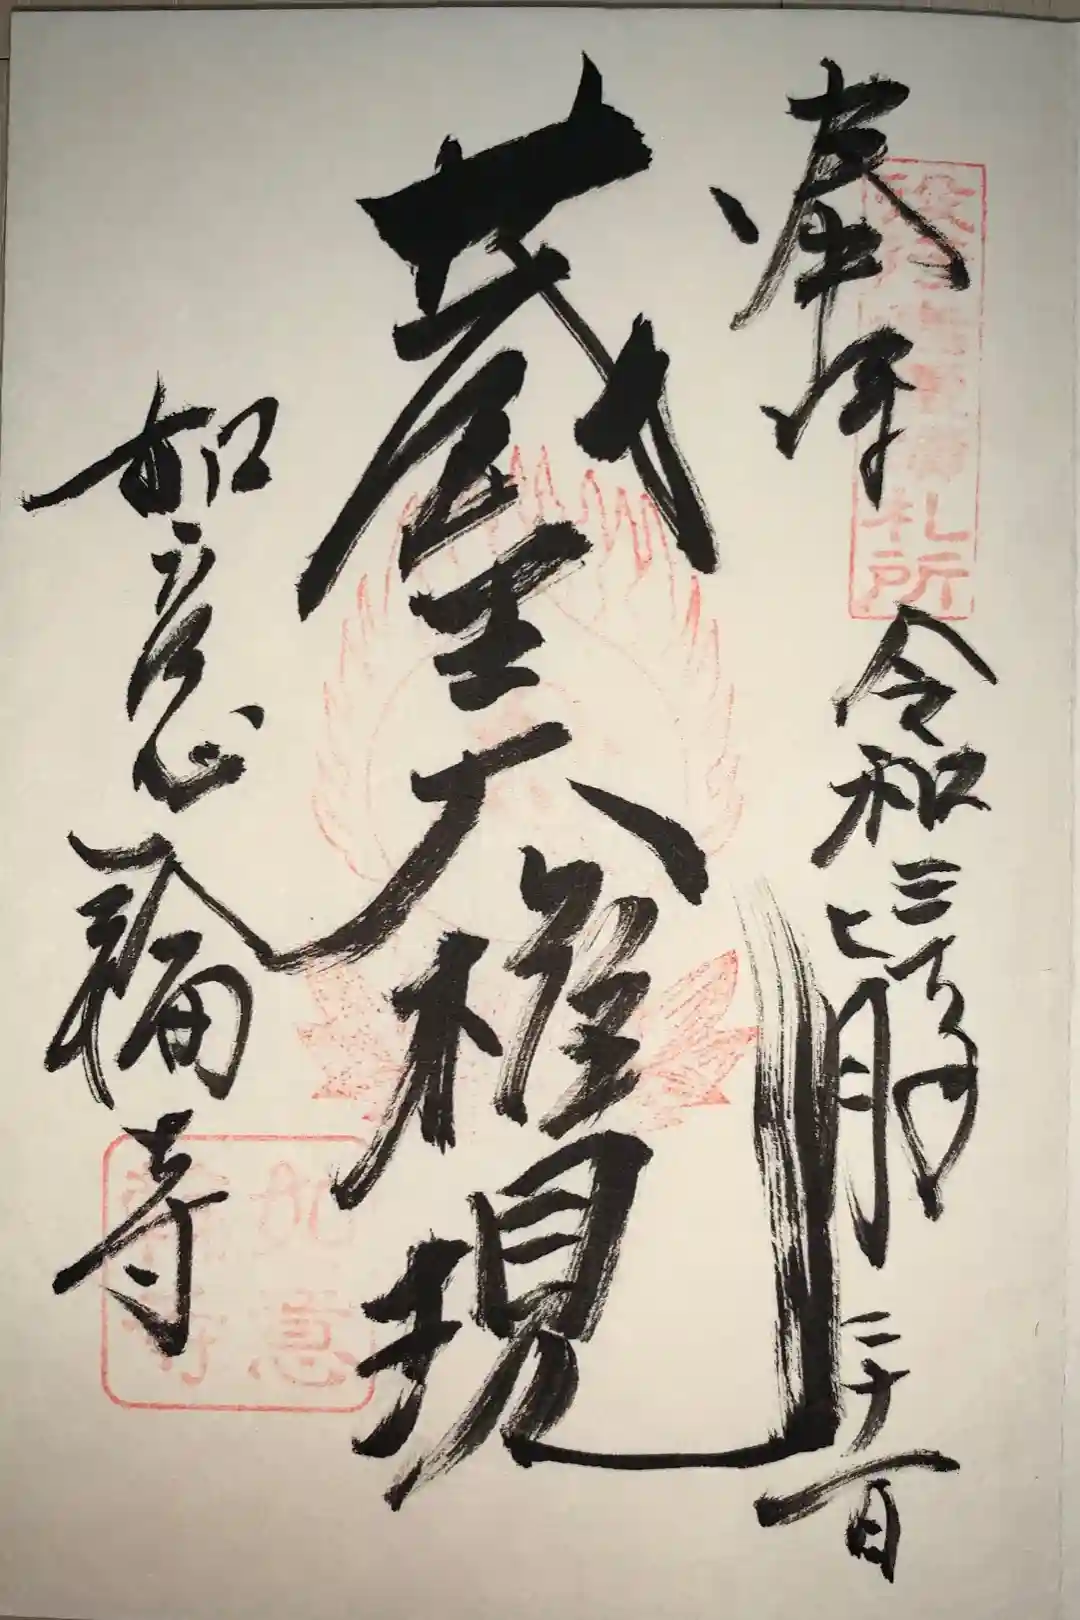 奉拝
役行者霊蹟札所
令和三年
七月二十一日
蔵王大権現
如意輪寺
如意
輪寺